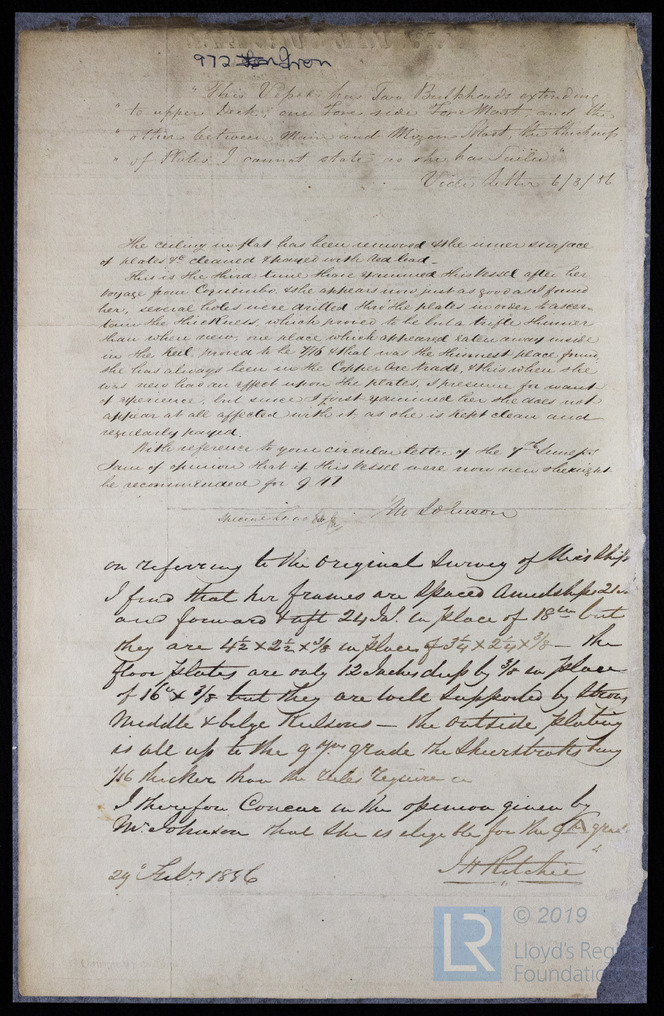 972 Iron
"This Vessel has Two Bulkheads extending
"to upper Deck one Fore side Fore Mast and the
"other between Main and Mizon Mast the thickness
"of Plates I cannot state as she has Sailed"
Vide letter 6/3/56
The ceiling in flat has been removed & the inner surface
of plates &c cleaned & payed with Red lead.
This is the third time I have examined this Vessel after her
Voyage from Coquimbo, & she appears now just as good as I found
her, several holes were drilled thro' the plates in order to ascer-
tain the thickness, which proved to be but a trifle thinner
than when new, one place which appeared eaten away inside
in the Keel, proved to be 7/16 & that was the thinnest place found
she has always been in the Copper Ore trade, & this when she
was new had an effect upon the plates, I presume for want
of experience, but since I first examined her she does not
appear at all affected with it, as she is kept clean and
regularly payed.
With reference to your circular letter of the 7th June
I am of opinion that if this Vessel were now new she might
be recommended for 9 A1
M Johnson
on referring to the Original Survey of this Ship
I find that her frames are Spaced Amidships 21 in
and forward & aft 24 Ins. in place of 18 in but
they are 4½ x 2½ x 3/8 in place of 3¼ x 2¼ x 3/8 — the
floor plates are only 12 Inches deep by 3/8 in place
of 16" x 3/8 but they are well Supported by Strong
Middle & bilge Keelsons — the outside plating
is all up to the 9 yrs grade the Sheerstrakes being
1/16 thicker than the rules require
I therefore Concur in the opinion given by
Mr Johnson that she is eligible for the 9 A grade
29 Feby 1856
J H Ritchie
LR
© 2019
Lloyd's Register
Foundation